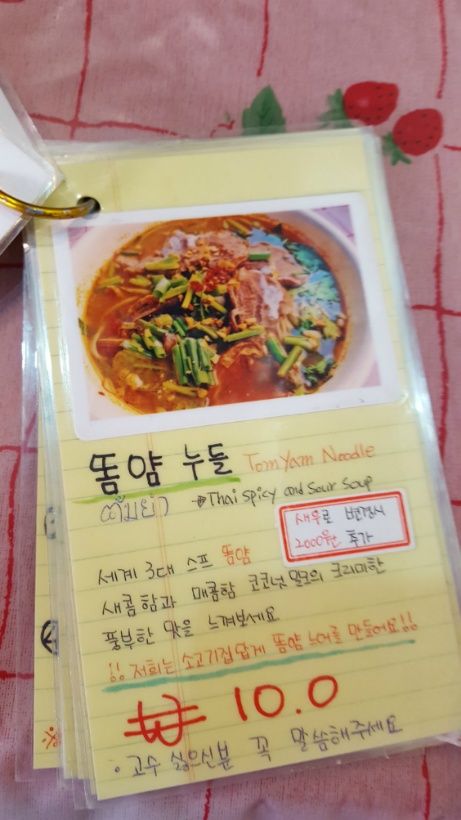 똠얌 누들 Tom Yam Noodle
ต้มยำ → Thai spicy and sour soup
새우로 변경시
2000원 추가
세계 3대 스프 똠얌
새콤함과 매콤함 코코넛 밀크의 크리미한
풍부한 맛을 느껴보세요
!! 저희는 소고기집답게 똠얌 느어를 만들어요!!
₩ 10.0
• 고수 싫으신분 꼭 말씀해주세요